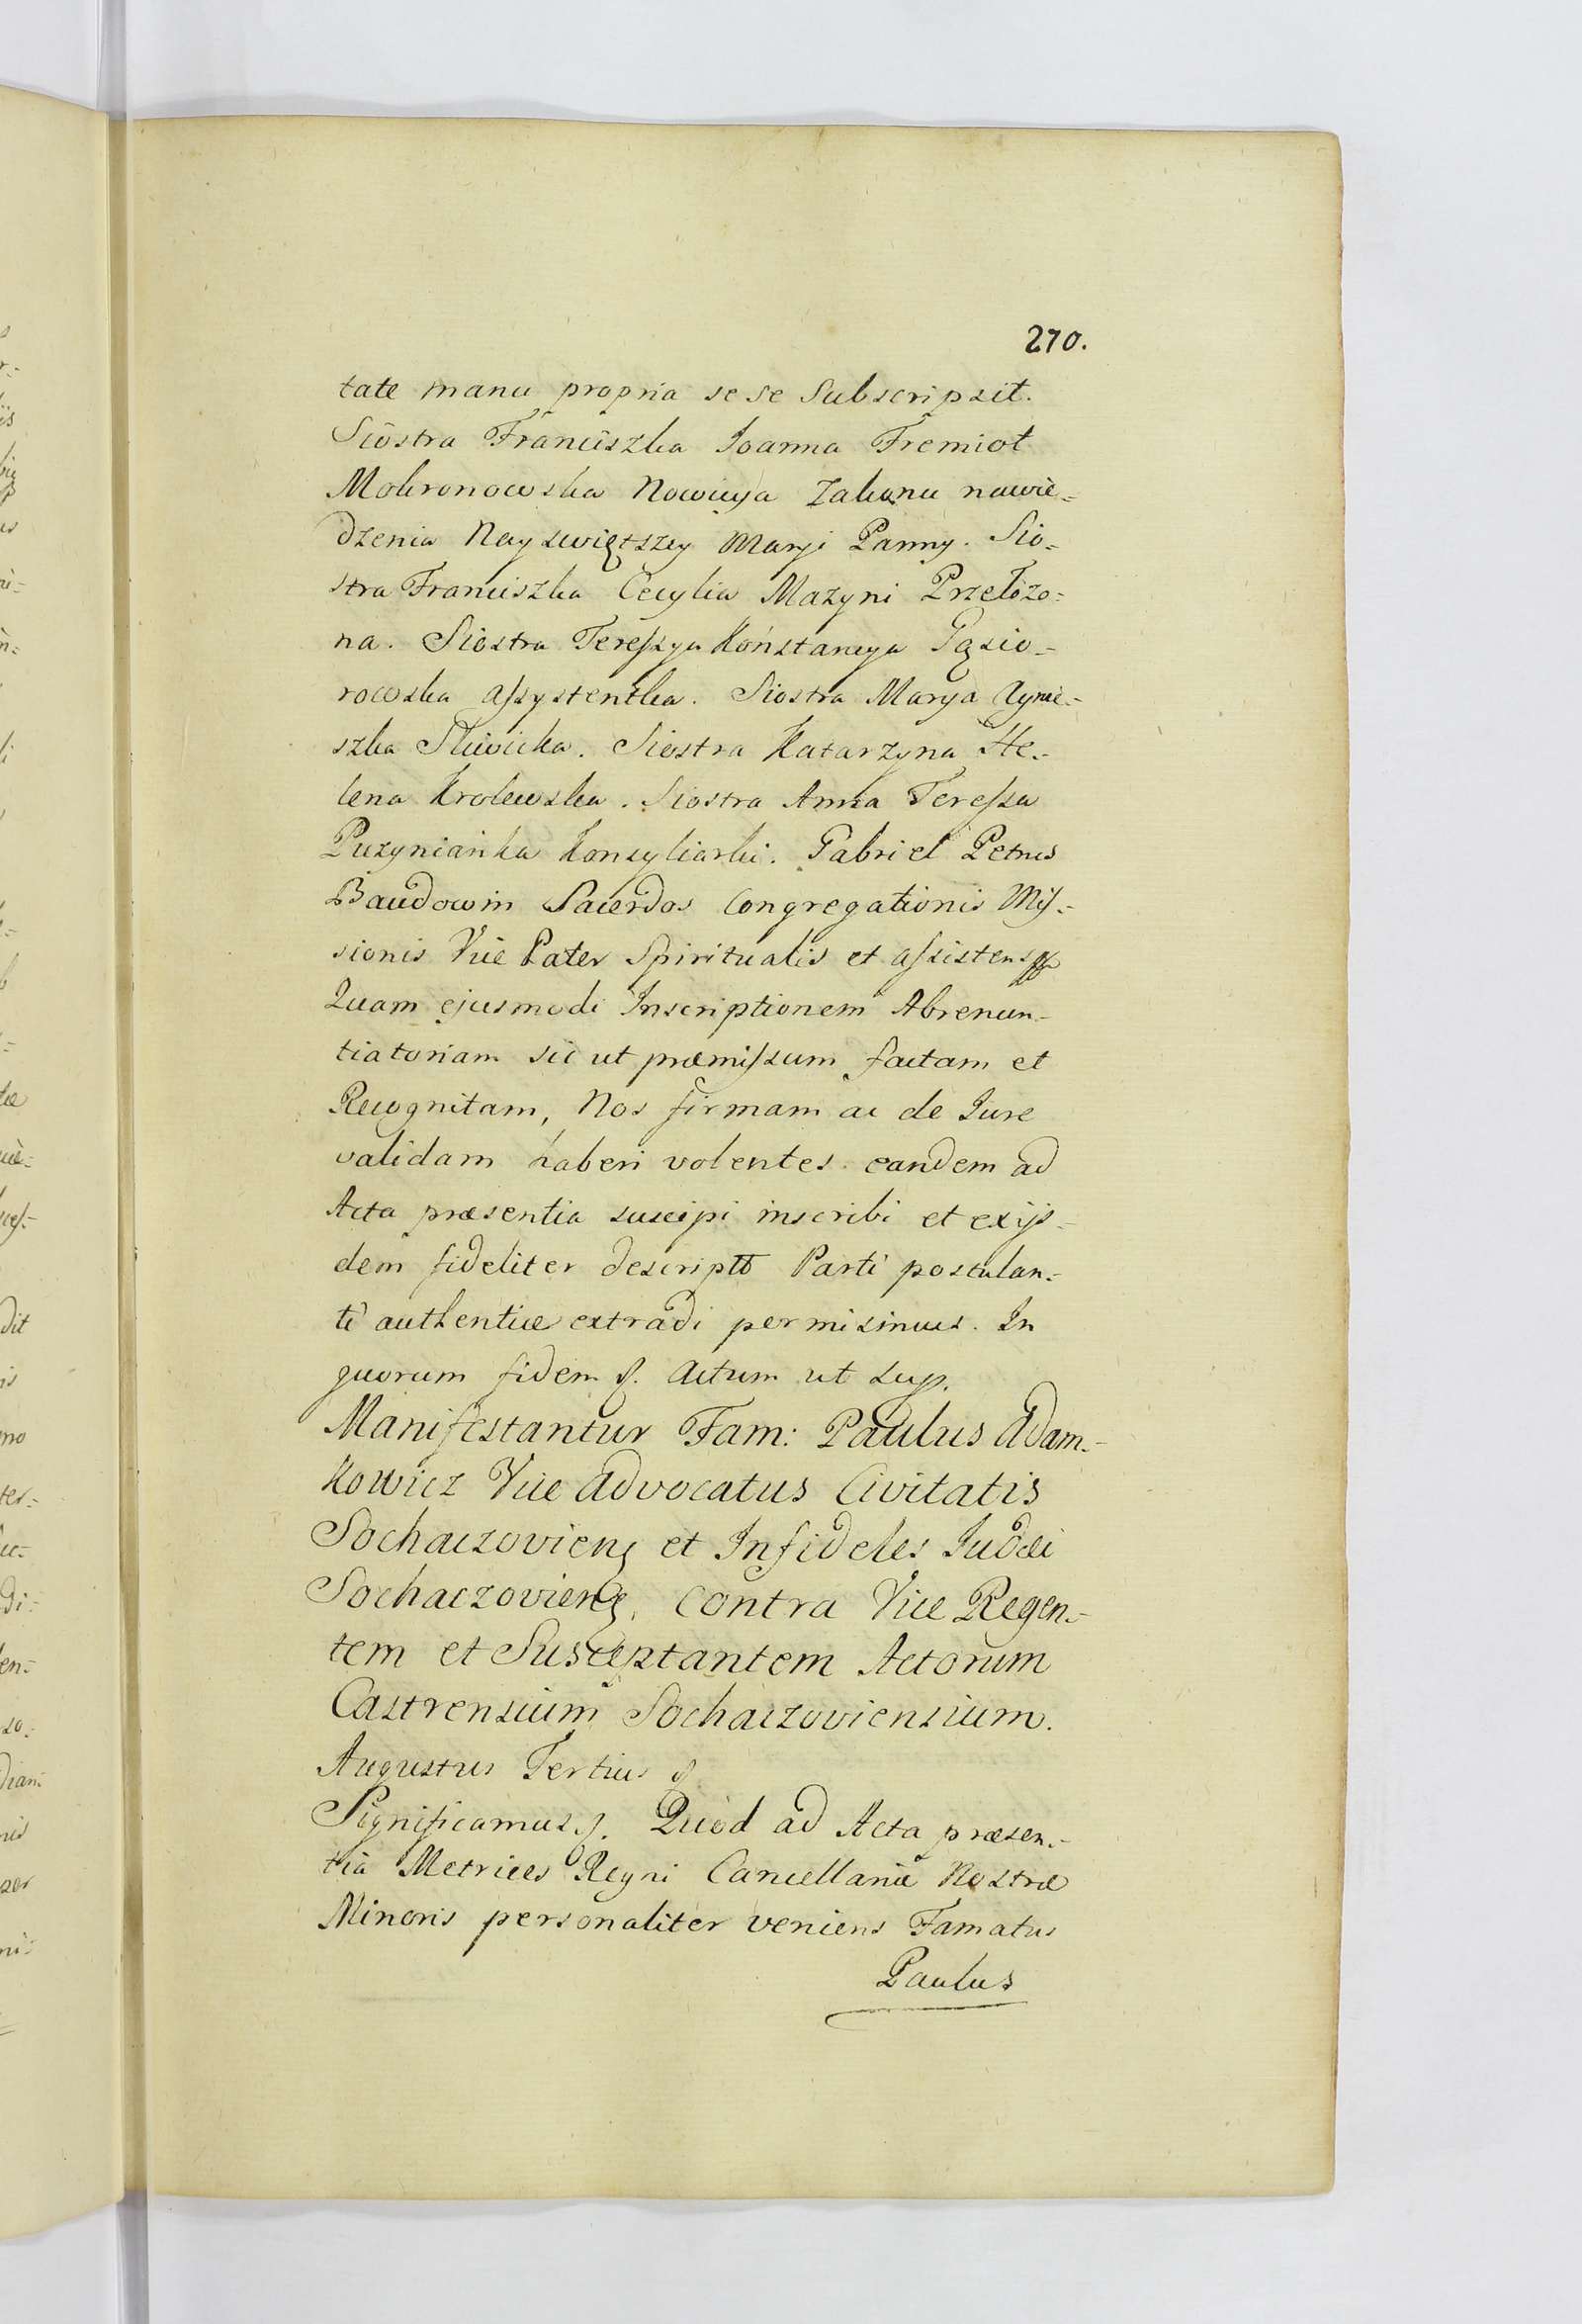 270.
tate manu propria se se Subscripsit.
Siostra Franciszka Joanna Fremiot
Mokronowska Nowicya Zakonu nawie=
dzenia Nayswiętszey Maryi Panny. Sio=
stra Franciszka Cecylia Mazyni Przełozo=
na. Siostra Teressya Konstancya Gąsio=
rowska Assystentka. Siostra Marya Agnie=
szka Sliwicka. Siostra Katarzyna He=
lena Krolewska. Siostra Anna Teressa
Puzynianka Konsyliarki. Gabriel Petrus
Baudowin Sacerdos Congregationis Mis=
sionis Vice Pater Spiritualis et assistens
Quam ejusmodi Inscriptionem Abrenun=
tiatoriam sic ut præmissum factam et
Recognitam, Nos firmam ac de Jure
validam haberi volentes eandem ad
Acta præsentia suscipi inscribi et exijs=
dem fideliter descriptt Parti postulan=
ti authentice extradi permisimus. In
quorum fidem &. Actum ut sup.
Manifestantur Fam: Paulus Adam=
kowicz Vice Advocatus Civitatis
Sochaczoviens et Infideles Judæi
Sochaczoviens. Contra Vice Regen=
tem et Susceptantem Actorum
Castrensium Sochaczoviensium.
Augustus Tertius &
Significamus &. Quod ad Acta præsen=
tia Metrices Regni Cancellariæ Nostræ
Minoris personaliter veniens Famatus
Paulus